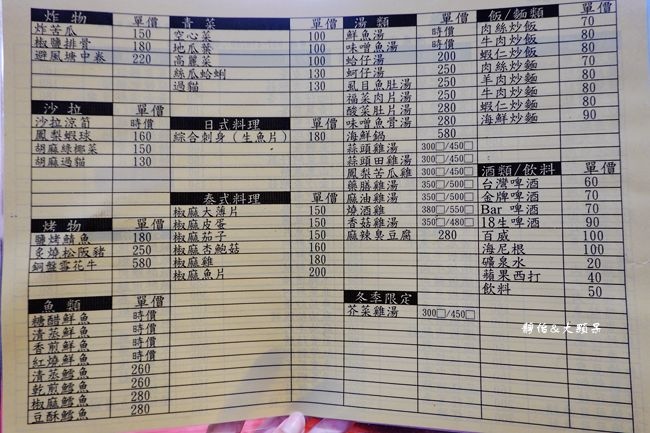 炸物 單價
炸苦瓜 150
椒鹽排骨 180
避風塘中卷 220
沙拉 單價
沙拉涼筍 時價
鳳梨蝦球 160
胡麻綠椰菜 150
胡麻過貓 130
烤物 單價
鹽烤鯖魚 180
炙燒松阪豬 250
銅盤雪花牛 580
魚類 單價
糖醋鮮魚 時價
清蒸鮮魚 時價
香煎鮮魚 時價
紅燒鮮魚 時價
清蒸鱈魚 260
乾煎鱈魚 260
椒麻鱈魚 280
豆酥鱈魚 280
青菜 單價
空心菜 100
地瓜葉 100
高麗菜 100
絲瓜蛤蜊 130
過貓 130
日式料理
綜合刺身(生魚片) 180
泰式料理
椒麻大薄片 150
椒麻皮蛋 150
椒麻茄子 150
椒麻杏鮑菇 160
椒麻雞 180
椒麻魚片 200
湯類 單價
鮮魚湯 時價
味噌魚湯 時價
蛤仔湯 200
蚵仔湯 280
虱目魚肚湯 280
福菜肉片湯 280
酸菜肚片湯 280
味噌魚骨湯 280
海鮮鍋 580
蒜頭雞湯 300□/450□
蒜頭田雞湯 300□/450□
鳳梨苦瓜雞 300□/450□
藥膳雞湯 350□/500□
麻油雞湯 350□/500□
燒酒雞 380□/550□
香菇雞湯 350□/480□
麻辣臭豆腐 280
冬季限定
芥菜雞湯 300□/450□
飯/麵類 單價
肉絲炒飯 70
牛肉炒飯 80
蝦仁炒飯 80
肉絲炒麵 70
羊肉炒麵 80
牛肉炒麵 80
蝦仁炒麵 80
海鮮炒麵 90
酒類/飲料 單價
台灣啤酒 60
金牌啤酒 70
Bar 啤酒 70
18生啤酒 90
百威 100
海尼根 100
礦泉水 20
蘋果西打 40
飲料 50
靜怡&大顆呆